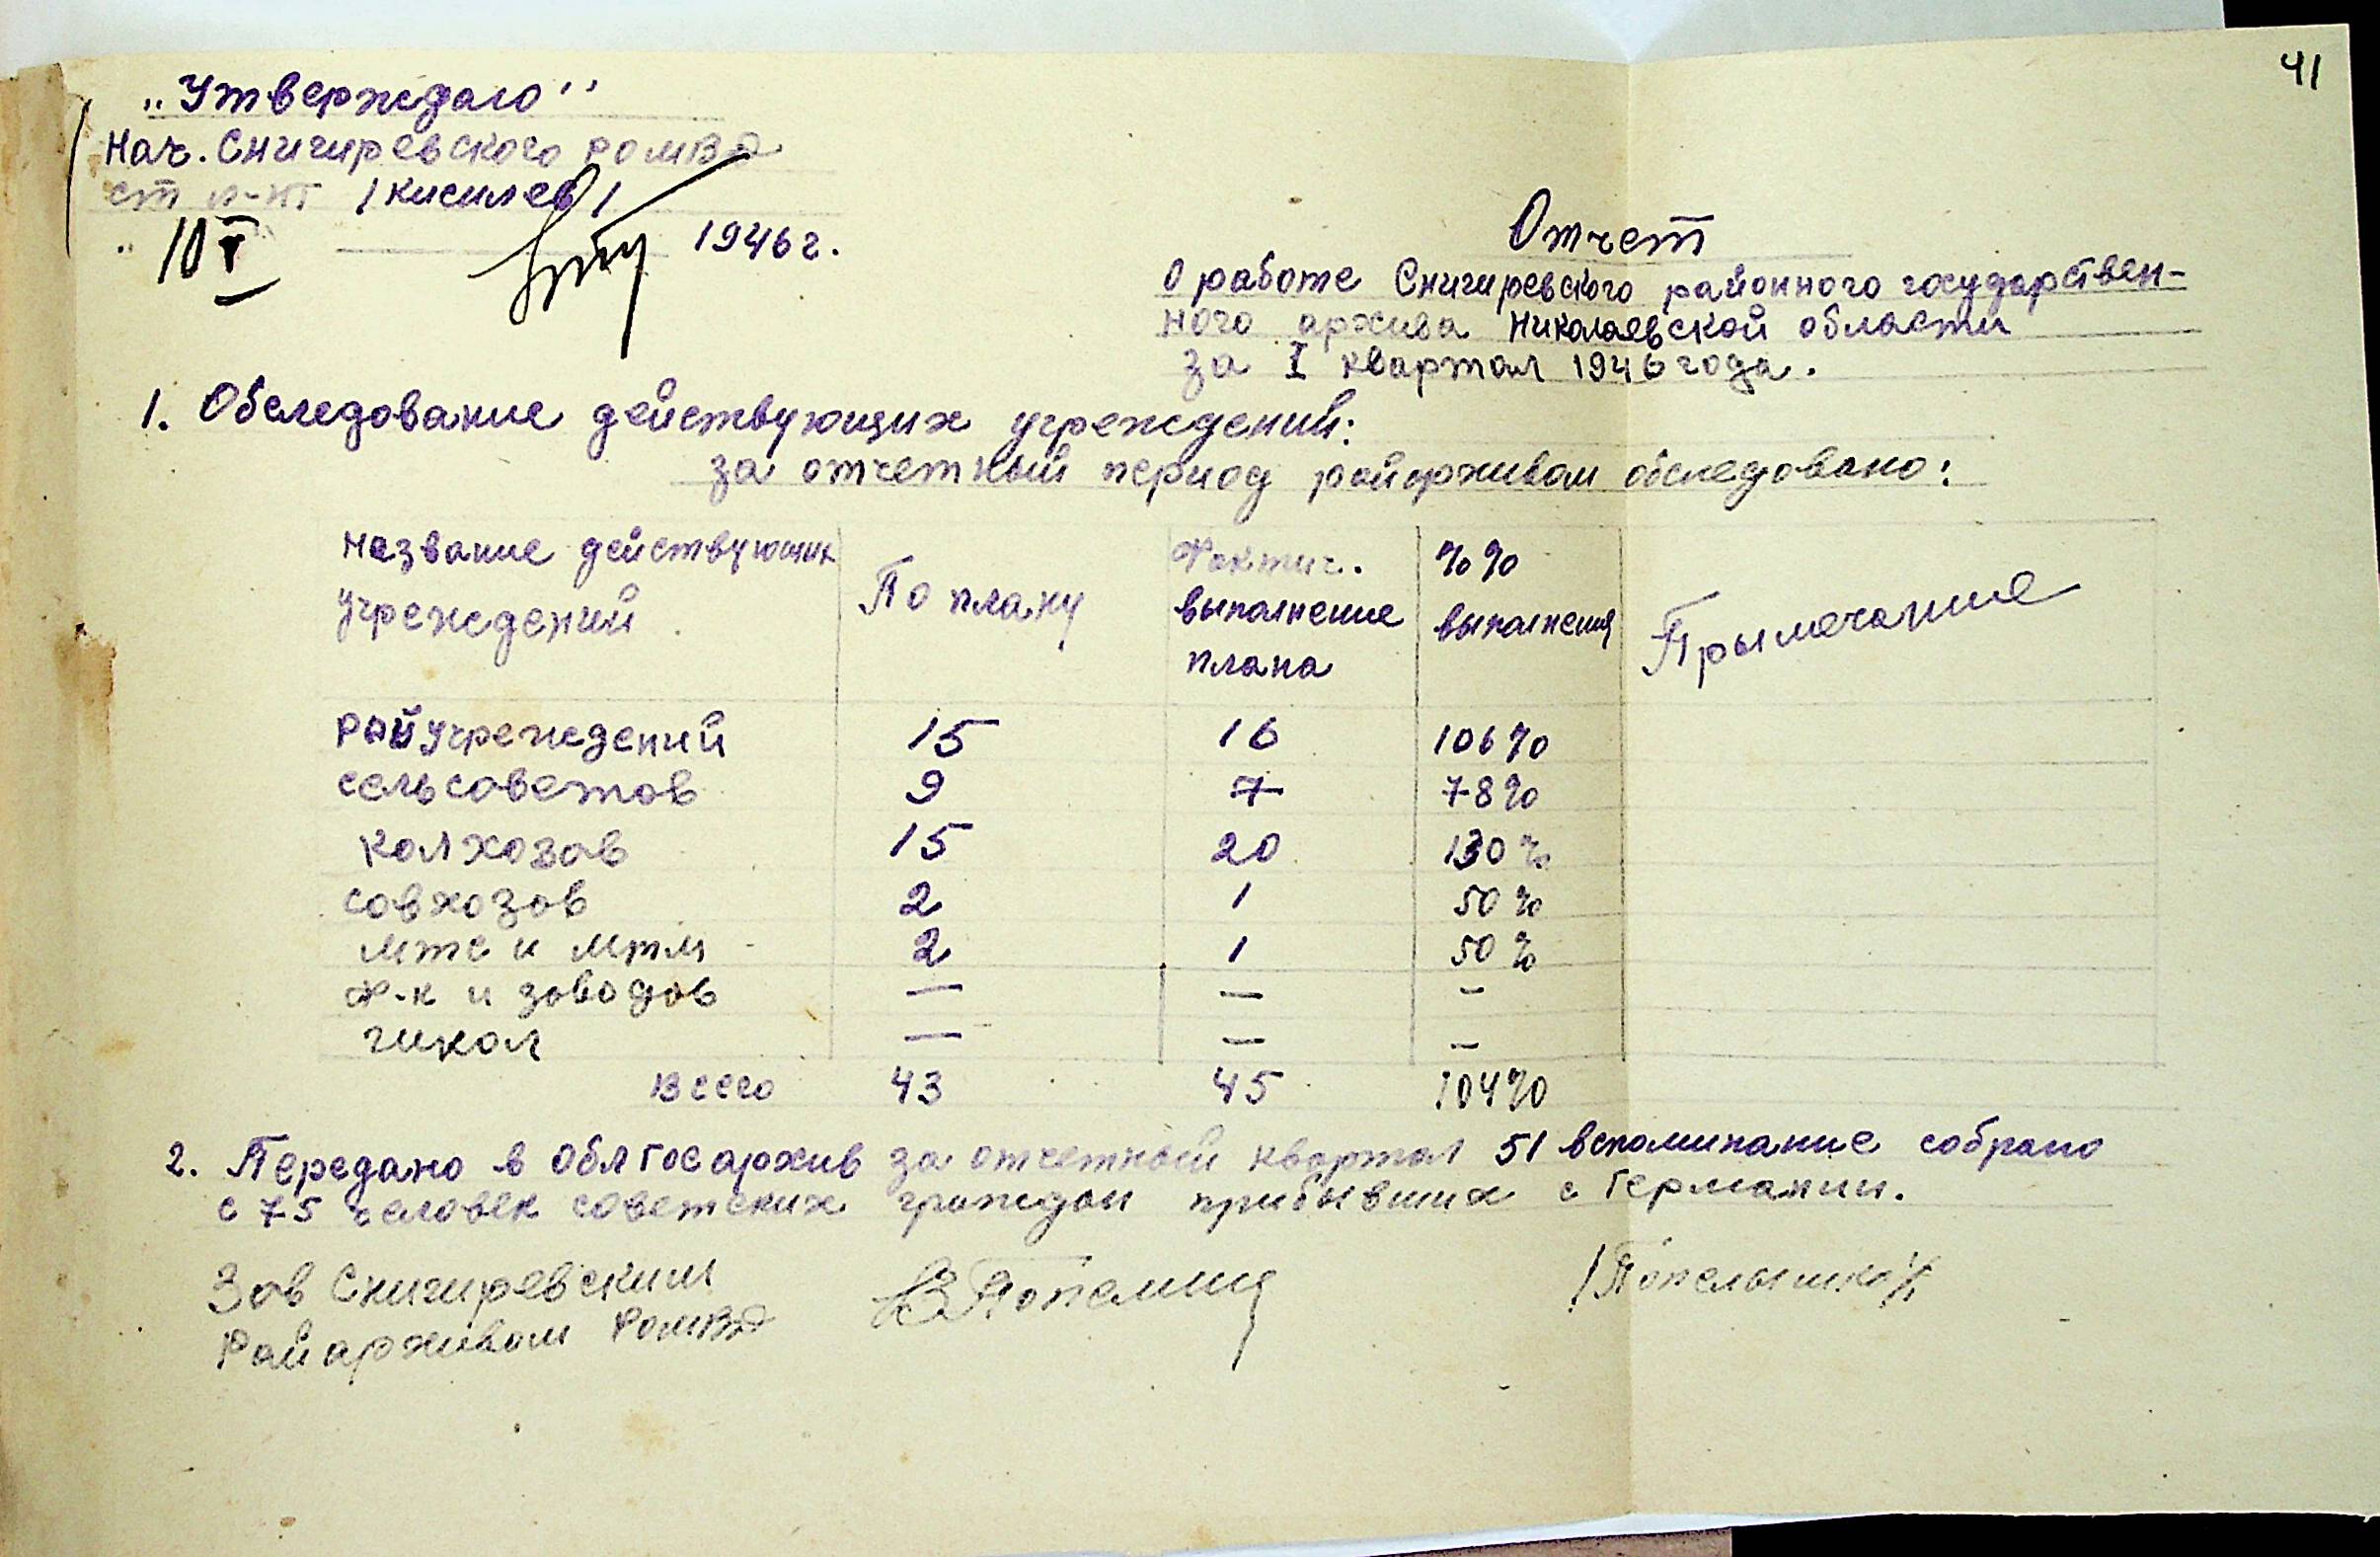 41
„Утверждаю"
Нач. Снигиревского РОМВД
ст л-нт /Кисилев/
" 10 V 1946 г.
Отчет
о работе Снигиревского районного государствен-
ного архива Николаевской области
за I квартал 1946 года.
1. Обследование действующих учреждений:
за отчетный период райархивом обследовано:
Название действующих учреждений По плану Фактич. выполнение плана %% выполнения Прымечание
Райучреждений 15 16 106%
сельсоветов 9 7 78%
колхозов 15 20 130%
совхозов 2 1 50%
МТС и МТМ 2 1 50%
ф-к и заводов — — —
школ — — —
Всего 43 45 104%
2. Передано в Облгосархив за отчетный квартал 51 вспоминание собрано
с 75 человек советских граждан прибывших с Германии.
Зав Снигиревским
Райархивом РОМВД